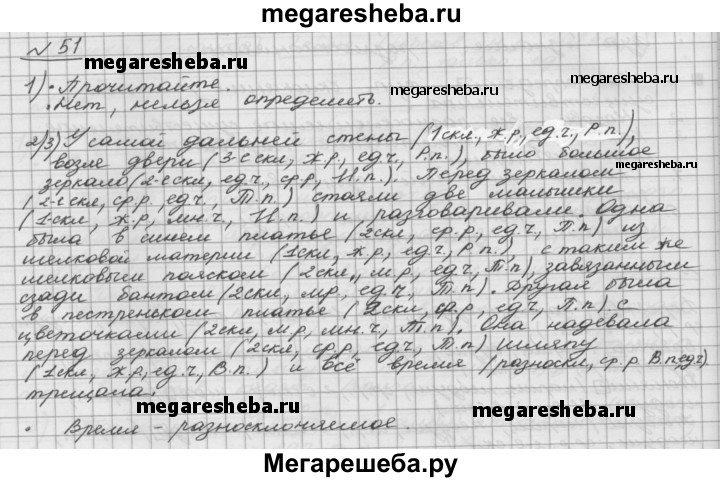 megaresheba.ru
№ 51
megaresheba.ru
1) • Прочитайте.
• Нет, нельзя определить.
megaresheba.ru
2)3) У самой дальней стены (1скл, ж.р, ед.ч, Р.п.),
возле двери (3-е скл, ж.р, ед.ч, Р.п.), было большое
megaresheba.ru
зеркало (2-е скл, ед.ч., ср.р, И.п.). Перед зеркалом
(2-е скл, ср.р, ед.ч, Т.п.) стояли две малышки
(1-скл, ж.р, мн.ч, И.п.) и разговаривали. Одна
была в синем платье (2скл, ср.р, ед.ч, П.п) из
шелковой материи (1скл, ж.р, ед.ч, Р.п.), с таким же
шелковым пояском (2скл, м.р, ед.ч, Т.п), завязанным
сзади бантом (2скл, м.р, ед.ч, Т.п). Другая была
в пестреньком платье (2скл, ср.р, ед.ч, П.п) с
цветочками (2скл, м.р, мн.ч, Т.п). Она надевала
перед зеркалом (2скл, ср.р, ед.ч, Т.п) шляпу
(1скл, ж.р, ед.ч, В.п.) и всё время (разноскл, ср.р В.п, ед.ч)
трещала.
megaresheba.ru
megaresheba.ru
• Время – разносклоняемое.
Мегарешеба.ру